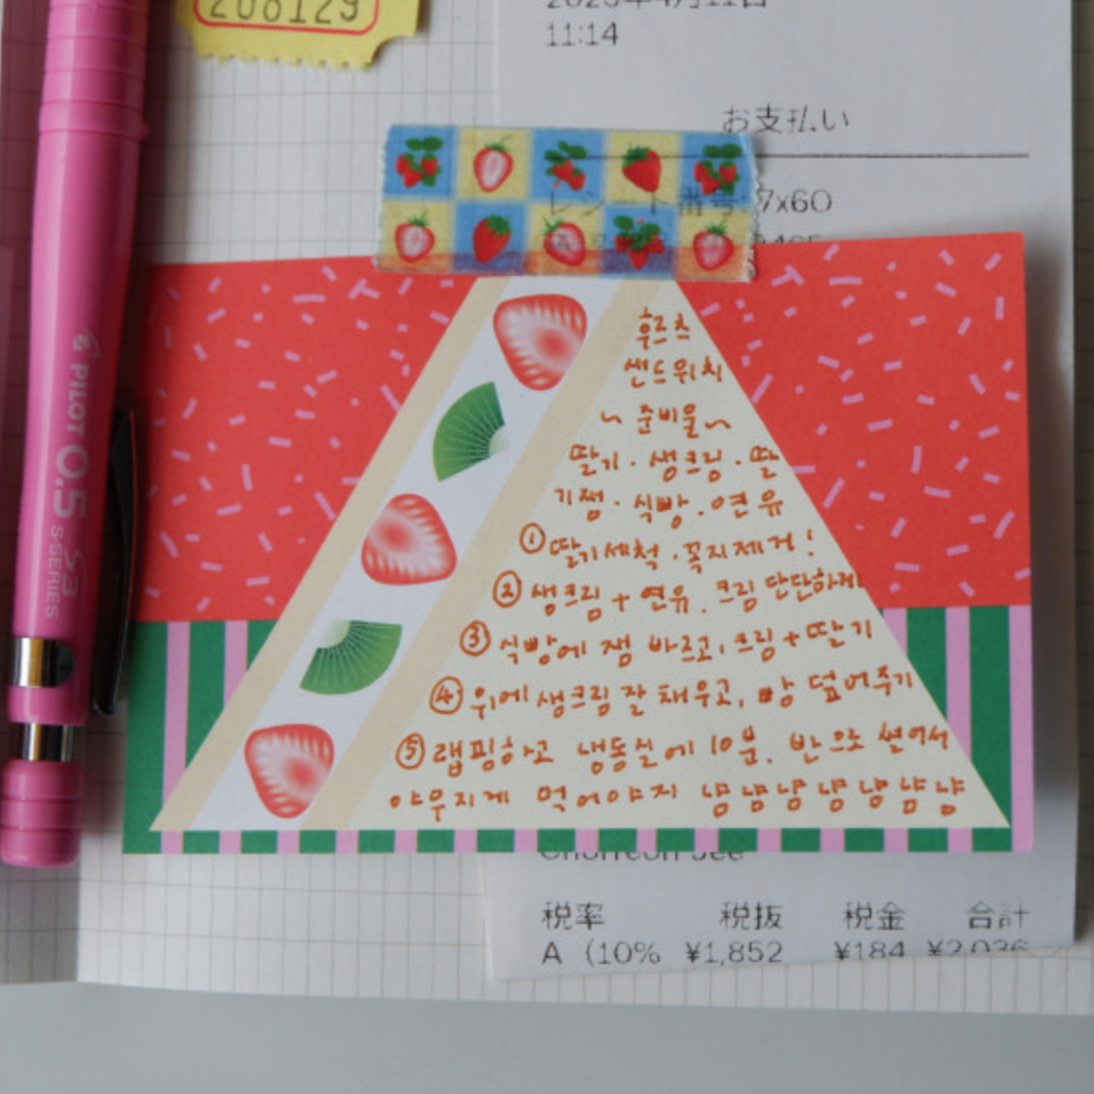 208129
2023年4月11日
11:14
お支払い
レシート番号 7x6O
후르츠
샌드위치
~ 준비물~
딸기 · 생크림 · 딸
기쨈 · 식빵 · 연유
① 딸기세척 · 꼭지제거!
② 생크림 + 연유. 크림 단단하게
③ 식빵에 잼 바르고, 크림+딸기
④ 위에 생크림 잘 채우고, 빵 덮어주기
⑤ 랩핑하고 냉동실에 10분. 반으로 썰어서
야무지게 먹어야지 냠냠냠냠냠냠냠
PILOT 0.5 S-SERIES S3
税率 税抜 税金 合計
A (10% ¥1,852 ¥184 ¥2,036